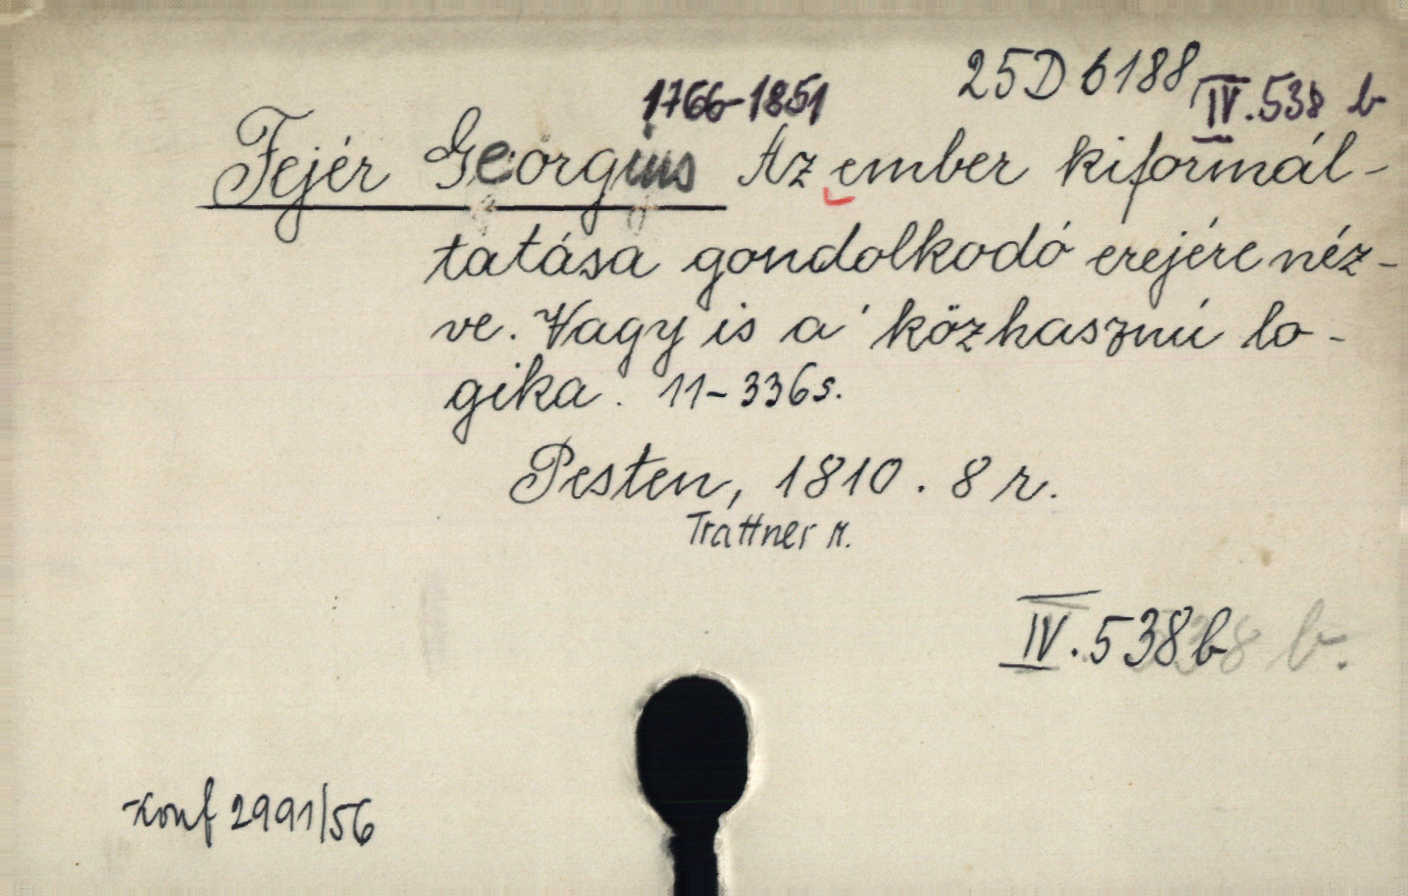 25D 6188
1766-1851 IV.538 b
Fejér Georgius Az ember kiformál-
tatása gondolkodó erejére néz-
ve. Vagy is a' közhasznú lo-
gika. 11-336 s.
Pesten, 1810. 8 r.
Trattner M.
IV.538b 38 b.
Konf 2991/56